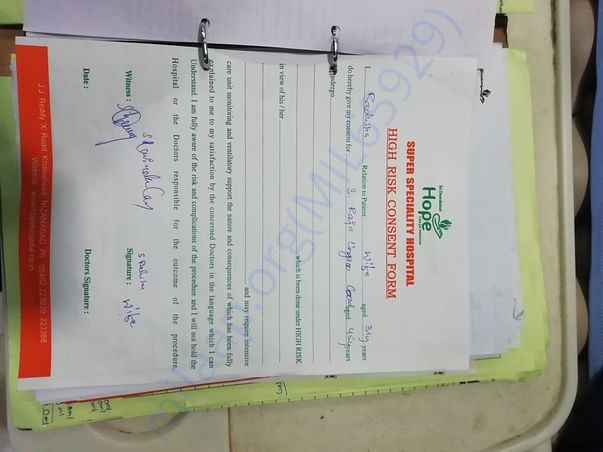 Sri Dhanalaxmi
Hope
SUPER SPECIALITY HOSPITAL
HIGH RISK CONSENT FORM
I Radhika Relation to Patient Wife aged 31y years
do hereby give my consent for S. Raja aged 45y years
undergo
which is been done under HIGH RISK
in view of his / her
and may require intensive
care unit monitoring and ventilatory support the nature and consequences of which has been fully
explained to me to my satisfaction by the concerned Doctors in the language which I can
Understand. I am fully aware of the risk and complications of the procedure and I will not hold the
Hospital or the Doctors responsible for the outcome of the procedure.
Witness : Signature : Wife
Date : Doctors Signature :
J.J. Reddy 'X' Road, Khaleelwadi, NIZAMABAD. Ph : 08462 - 223939, 223388
milaap.org(MIL65929)